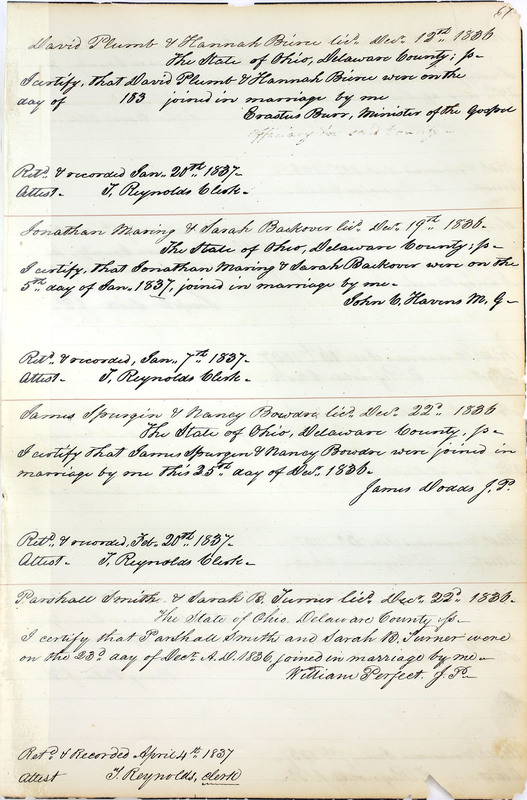 67
David Plumb & Hannah Bierce licd. Decr. 12th 1836
The State of Ohio, Delaware County; ss-
I certify, that David Plumb & Hannah Bierce were on the
day of 183 joined in marriage by me
Erastus Burr, Minister of the Gospel
Officiary for said County -
Retd. & recorded Jan. 20th 1837-
Attest- T. Reynolds Clerk-
Jonathan Maring & Sarah Backover licd. Decr. 19th 1836-
The State of Ohio, Delaware County; ss-
I certify, that Jonathan Maring & Sarah Backover were on the
5th day of Jan. 1837, joined in marriage by me-
John C. Havens M. G-
Retd. & recorded, Jan. 7th 1837-
Attest- T. Reynolds Clerk-
James Spurgin & Nancy Bowdre licd. Decr. 22d. 1836
The State of Ohio, Delaware County, ss-
I certify that James Spurgen & Nancy Bowdre were joined in
marriage by me this 25th day of Decr. 1836-
James Dodds J. P.
Retd. & recorded, Feb. 20th 1837-
Attest- T. Reynolds Clerk-
Parshall Smith & Sarah B. Turner licd. Decr. 22d. 1836-
The State of Ohio Delaware County ss-
I certify that Parshall Smith and Sarah B. Turner were
on the 23d day of Decr. A. D. 1836, joined in marriage by me-
William Perfect J. P-
Retd. & Recorded April 4th. 1837
attest T. Reynolds, clerk